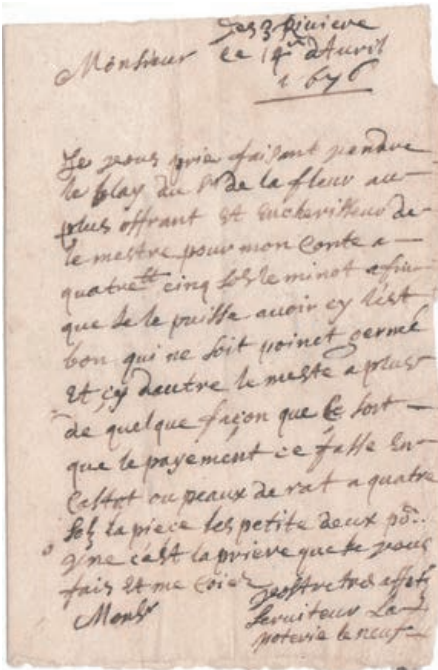 Des 3 Riviere
Monsieur ce 14 d'Avril
1676
Je vous prie faisant vendre
le blay du Sr de la fleur au
plus offrant et encherisseur de
le mestre pour mon conte a
quatre tt cinq sols le minot afin
que Je le puisse avoir cy l'est
bon qui ne soit poinct germé
Et cy dautre le meste a plus
de quelque façon que Ce soit
que le payement ce fasse En
Castor ou peaux de rat a quatre
sols la piece les petite deux po..
gne cest la prière que Je vous
fais Et me Croiez vostre tres affect
Monsr serviteur La
poterie le neuf